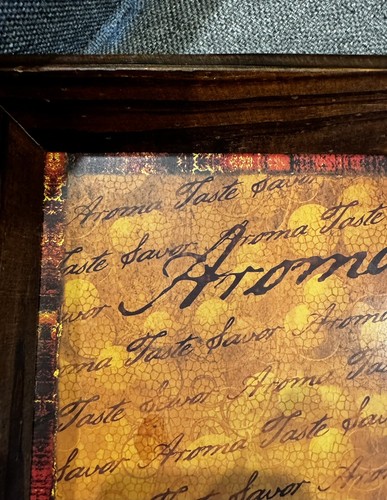 Aroma Taste Savor
Taste Savor Aroma Taste
Aroma
Savor
Aroma Taste Savor Aroma
Taste Savor Aroma Taste
Savor Aroma Taste
Taste Savor